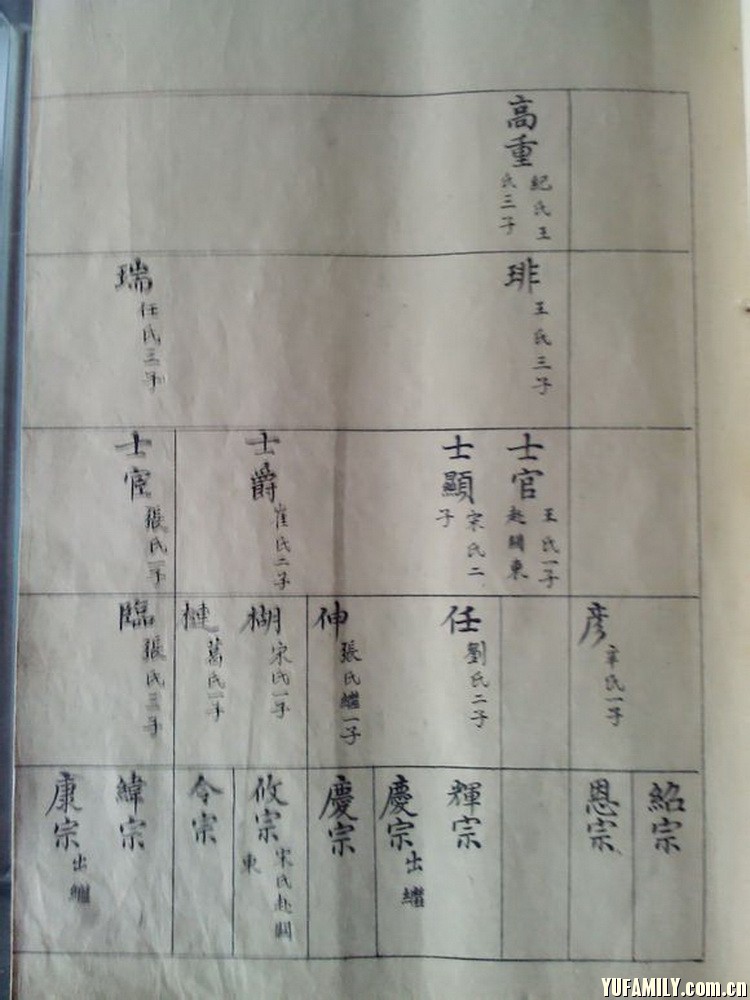 高重
紀氏王
氏三子
琲
王氏三子
瑞
任氏三子
士官
王氏一子
赴關東
士顯
宋氏二
子
士爵
崔氏二子
士宦
張氏一子
彦
辛氏一子
任
劉氏二子
伸
張氏繼一子
楜
宋氏一子
槤
葛氏一子
臨
張氏三子
紹宗
恩宗
輝宗
慶宗
出繼
慶宗
攸宗
宋氏赴関
東
令宗
緯宗
康宗
出繼
YUFAMILY.com.cn